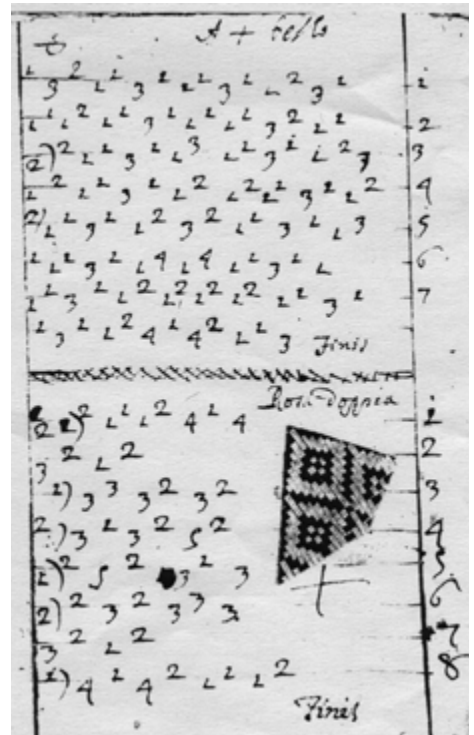 1 3 2 1 1 3 1 1 1 3 1 1 2 3 1 1
1 1 2 1 1 3 1 1 1 1 3 2 1 1 2
2) 2 1 1 3 1 1 3 1 1 3 1 1 2 3 3
1 2 1 1 3 1 1 2 1 2 1 3 1 1 2 4
2) 1 1 3 1 1 2 3 2 1 1 1 3 5
1 1 3 1 1 4 1 4 1 1 3 1 1 6
1 1 3 1 1 2 1 2 1 2 1 2 1 1 3 1 7
1 3 1 1 2 4 4 2 1 1 3 Finis
Rosa doppea
2) 2 1 1 1 2 4 1 4 1
3 2 1 2 2
1) 3 3 3 2 3 2 3
2) 3 1 3 2 5 2 4
1) 2 5 2 3 2 3 5
2) 2 3 2 3 3 3 6
3 2 1 2 7
1) 4 1 4 2 1 1 1 2 8
Finis